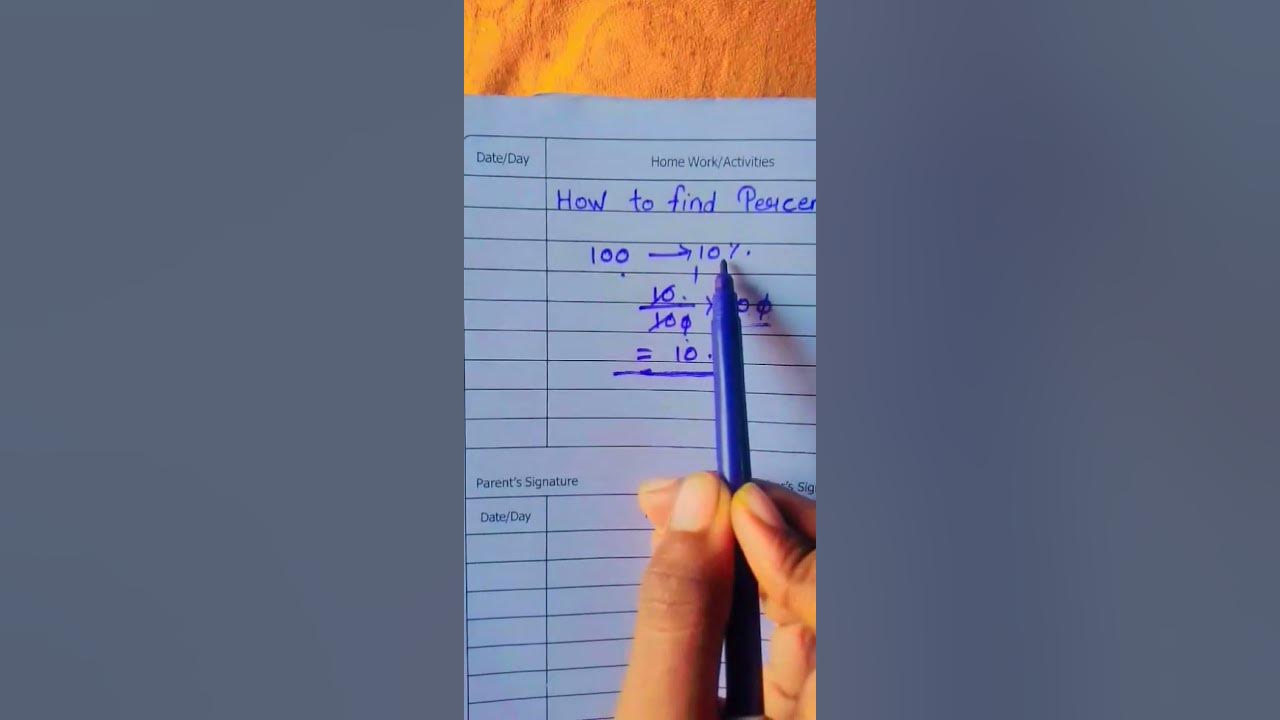 Date/Day Home Work/Activities
How to find
100 → 10%.
10.
100
= 10.
Parent's Signature
Date/Day